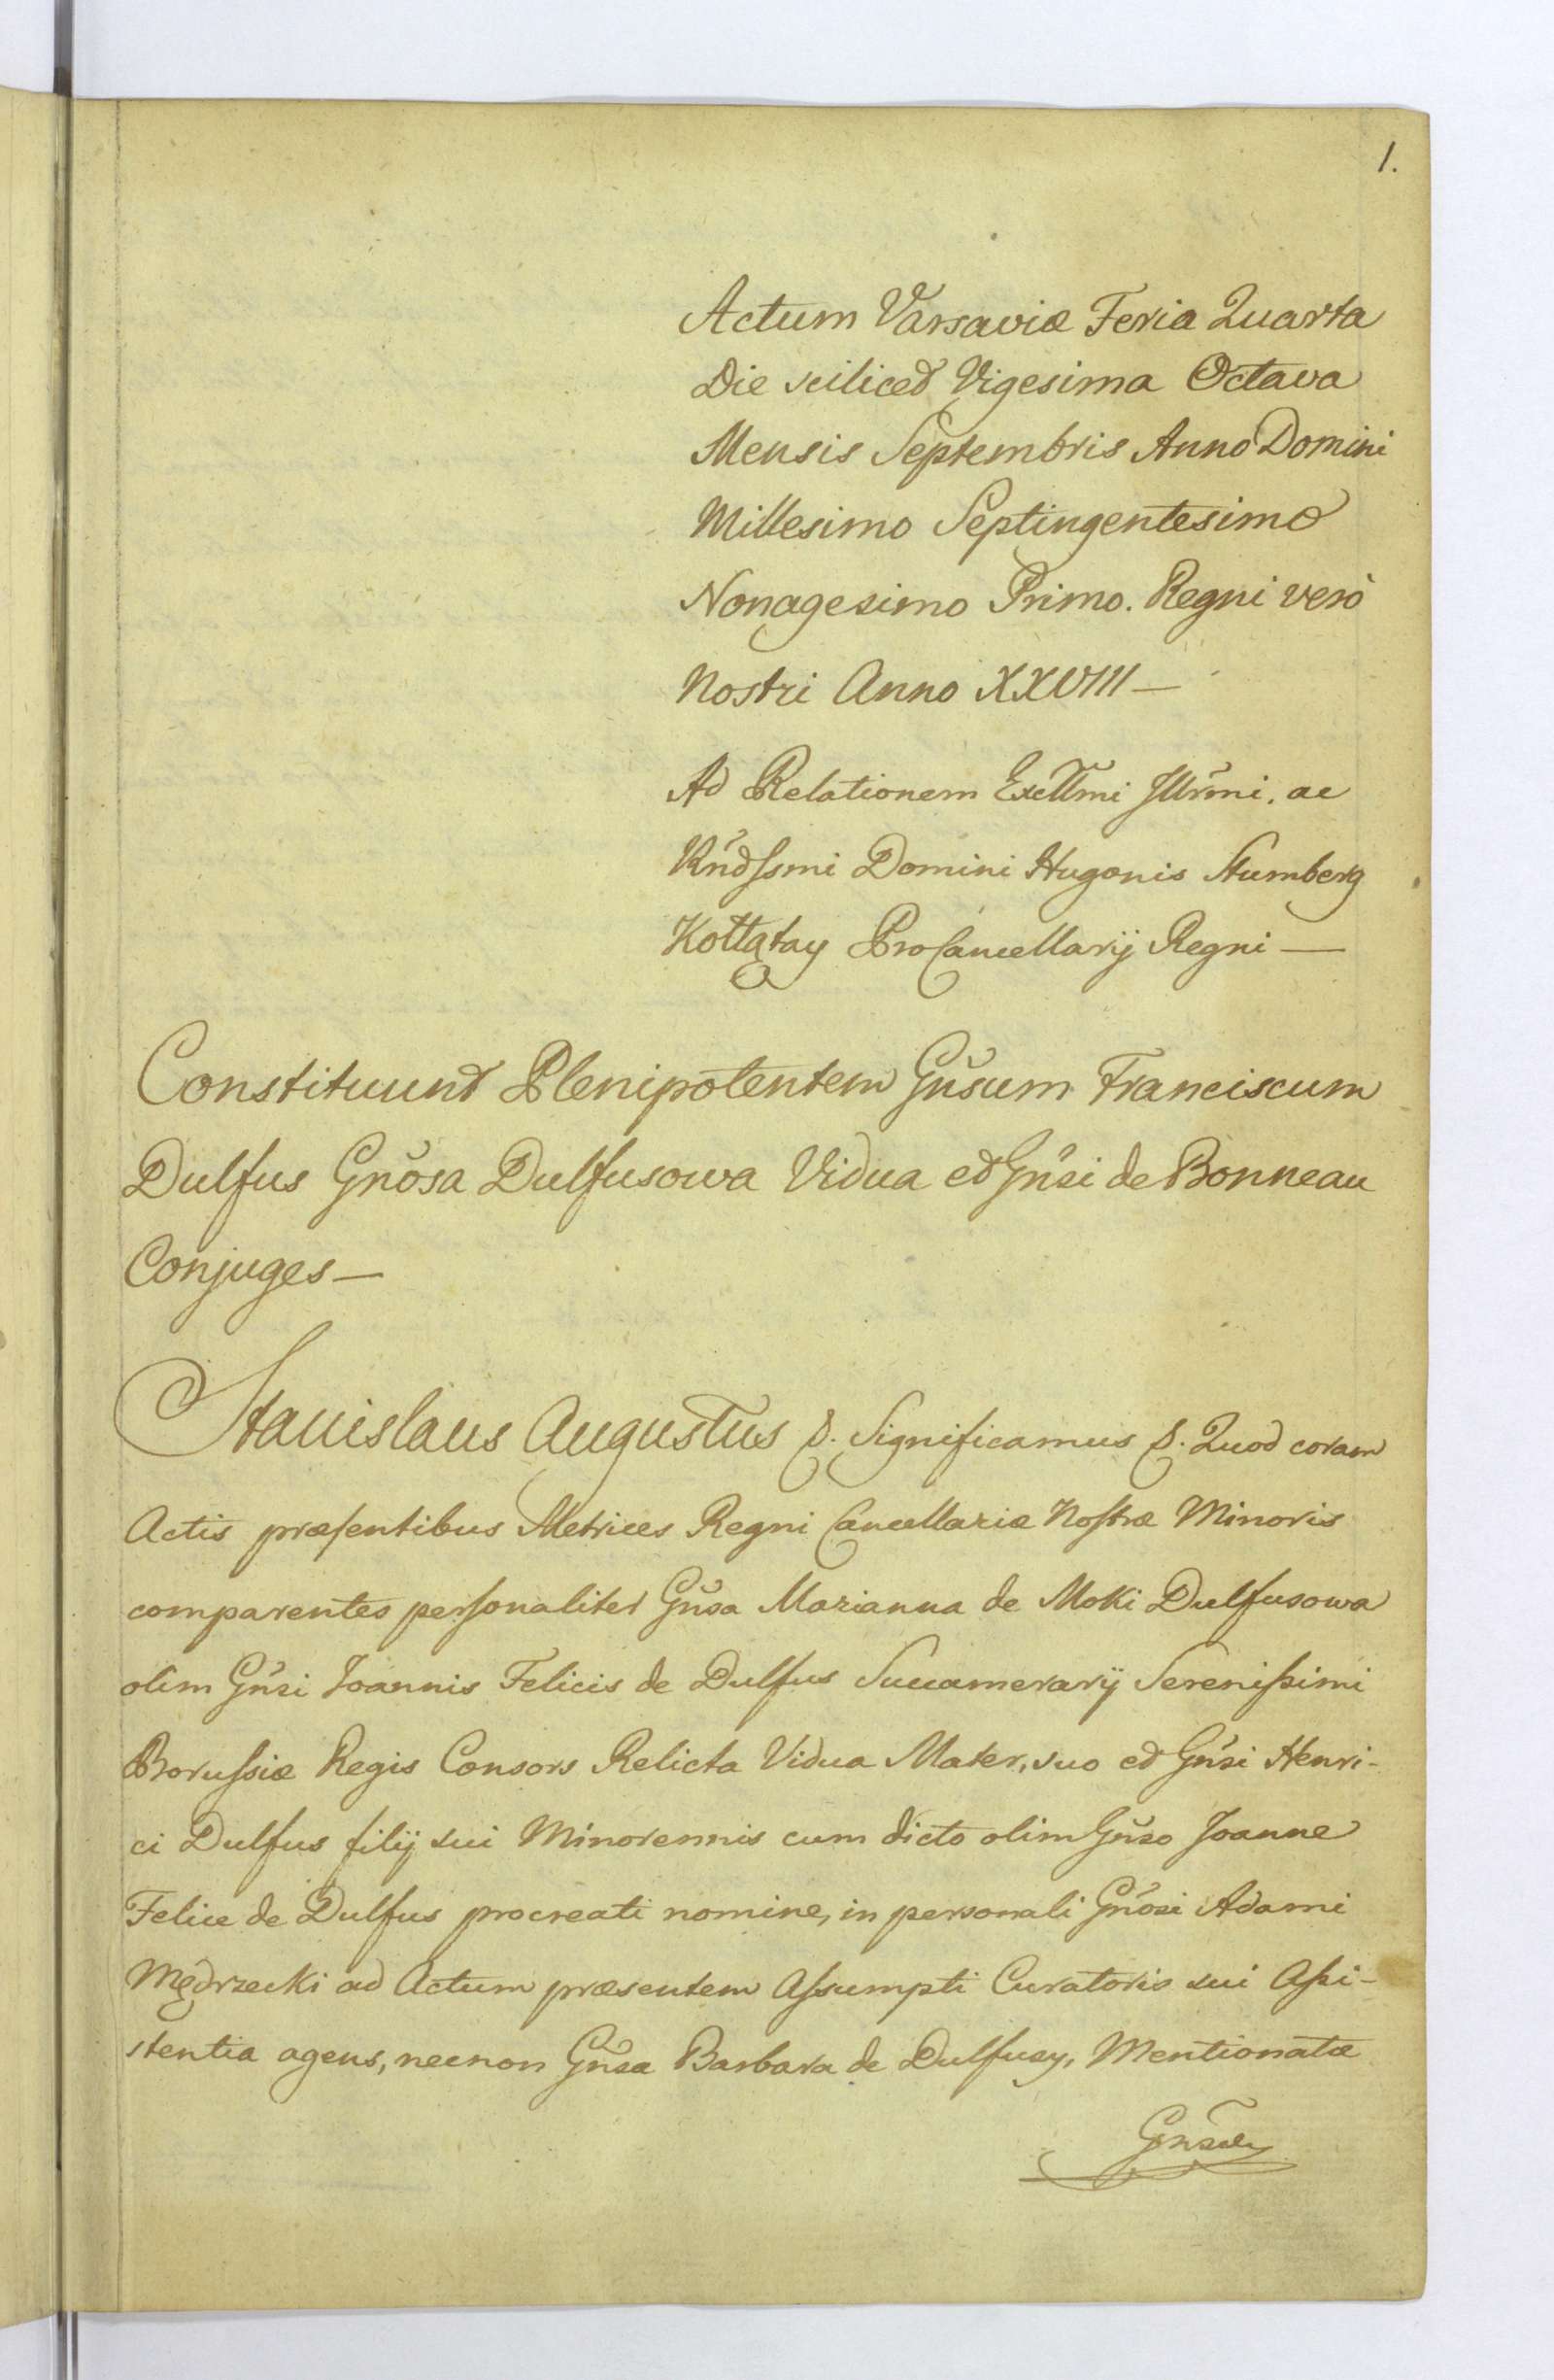 1.
Actum Varsaviæ Feria Quarta
Die scilicet Vigesima Octava
Mensis Septembris Anno Domini
Millesimo Septingentesimo
Nonagesimo Primo. Regni verò
Nostri Anno XXVIII —
Ad Relationem Excllm̃i Jllr̃mi. ac
Rñdſsmi Domini Hugonis Stumberg
Kołłątay ProCancellarij Regni —
Constituunt Plenipotentem Gñsum Franciscum
Dulfus Gñosa Dulfusowa Vidua et Gñsi de Bonneau
Conjuges —
Stanislaus Augustus &. Significamus &. Quod coram
Actis præſentibus Metrices Regni Cancellariæ Noſtræ Minoris
comparentes perſonaliter Gñsa Marianna de Moki Dulfusowa
olim Gñsi Joannis Felicis de Dulfus Succamerarij Sereniſsimi
Boruſsiæ Regis Consors Relicta Vidua Mater, suo et Gñsi Henri-
ci Dulfus filij sui Minorennis cum dicto olim Gñso Joanne
Felice de Dulfus procreati nomine, in personali Gñosi Adami
Mędrzecki ad Actum præsentem Aſsumpti Curatoris sui Aſsi-
stentia agens, necnon Gñsa Barbara de Dulfusy, Mentionatæ